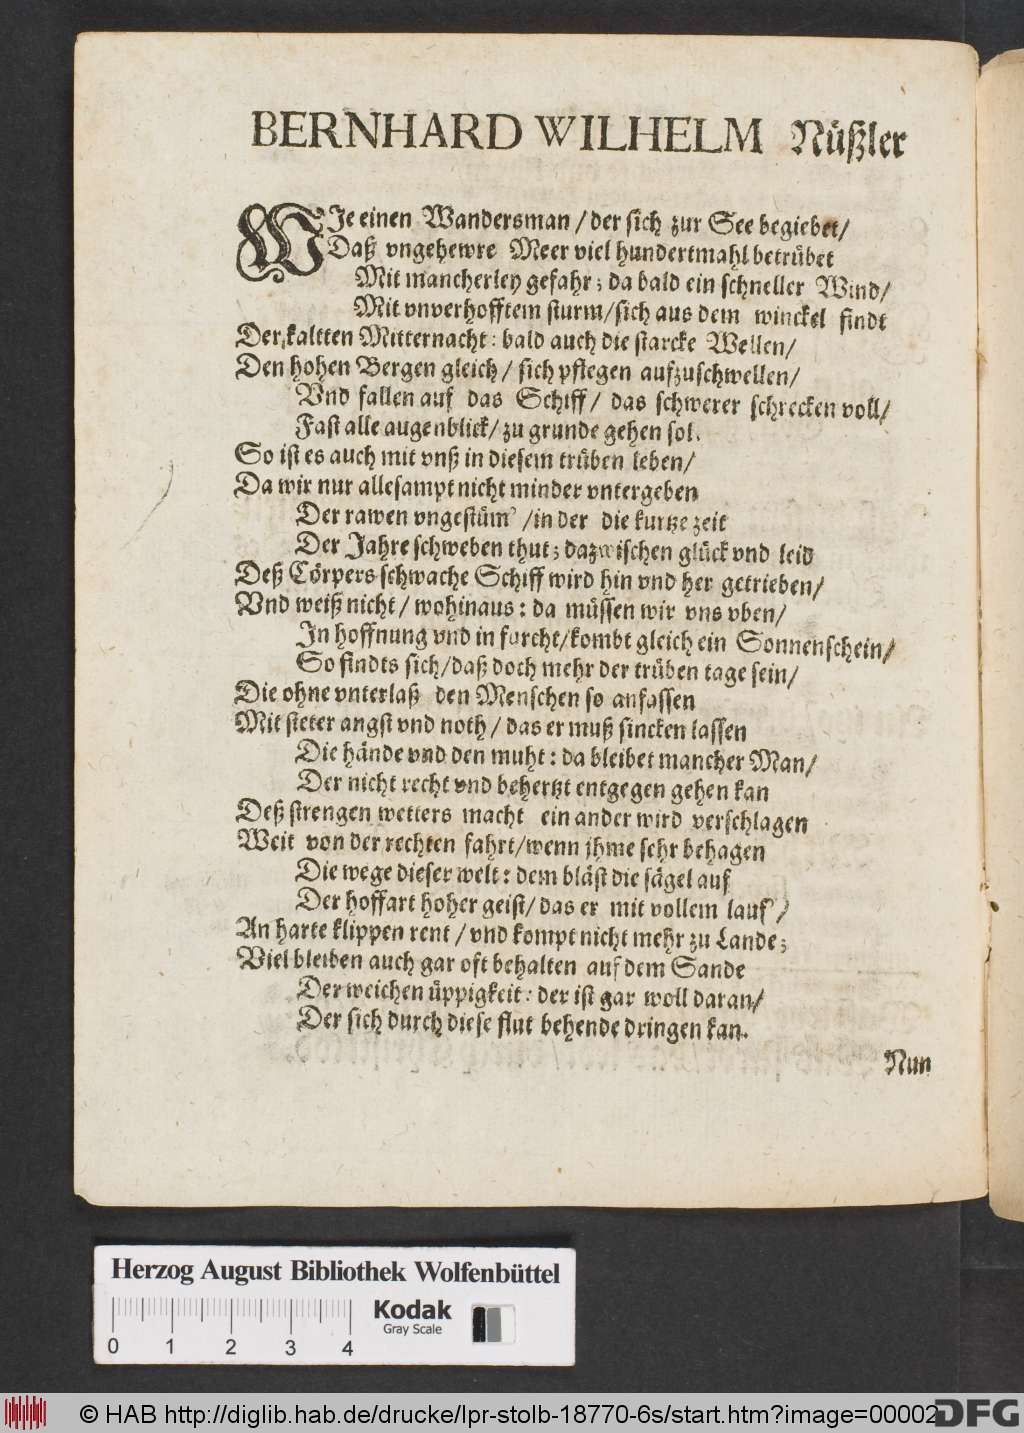 BERNHARD WILHELM Nüßler
WJe einen Wandersman / der sich zur See begiebet /
Daß vngehewre Meer viel hundertmahl betrübet
Mit mancherley gefahr; da bald ein schneller Wind /
Mit vnverhofftem sturm / sich aus dem winckel findt
Der kaltten Mitternacht: bald auch die starcke Wellen /
Den hohen Bergen gleich / sich pflegen aufzuschwellen /
Vnd fallen auf das Schiff / das schwerer schrecken voll /
Fast alle augenblick / zu grunde gehen sol.
So ist es auch mit vnß in diesem trüben leben /
Da wir nur allesampt nicht minder vntergeben
Der rawen vngestüm' / in der die kurtze zeit
Der Jahre schweben thut; dazwischen glück vnd leid
Deß Cörpers schwache Schiff wird hin vnd her getrieben /
Vnd weiß nicht / wohinaus: da müssen wir vns vben /
In hoffnung vnd in furcht / kombt gleich ein Sonnenschein /
So findts sich / daß doch mehr der trüben tage sein /
Die ohne vnterlaß den Menschen so anfassen
Mit steter angst vnd noth / das er muß sincken lassen
Die hände vnd den muht: da bleibet mancher Man /
Der nicht recht vnd behertzt entgegen gehen kan
Deß strengen wetters macht ein ander wird verschlagen
Weit von der rechten fahrt / wenn jhme sehr behagen
Die wege dieser welt: dem bläst die sägel auf
Der hoffart hoher geist / das er mit vollem lauf' /
An harte klippen rent / vnd kompt nicht mehr zu Lande;
Viel bleiben auch gar oft behalten auf dem Sande
Der weichen üppigkeit: der ist gar woll daran /
Der sich durch diese flut behende dringen kan.
Nun
Herzog August Bibliothek Wolfenbüttel
Kodak
Gray Scale
0 1 2 3 4
© HAB http://diglib.hab.de/drucke/lpr-stolb-18770-6s/start.htm?image=00002
DFG